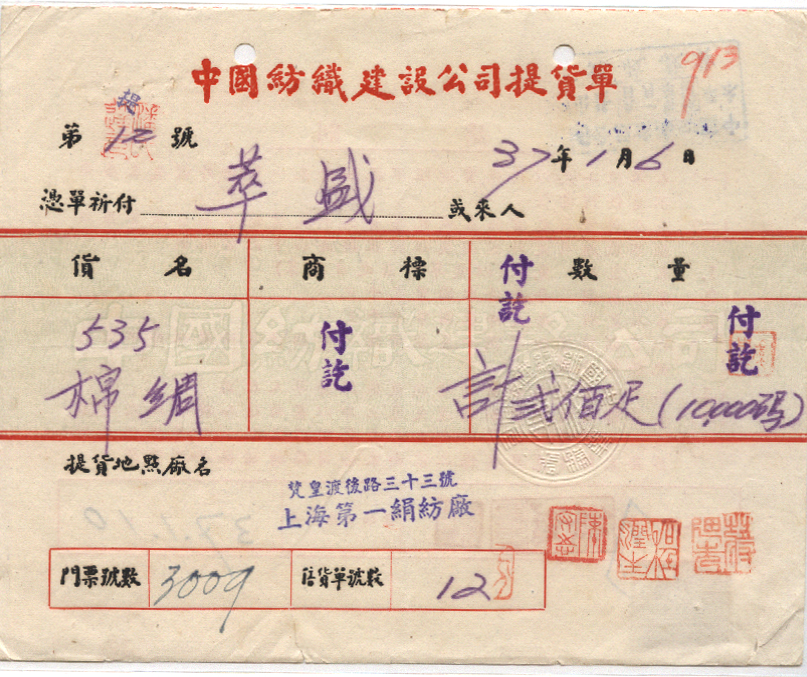 中國紡織建設公司提貨單
913
提
第 12 號
37年1月6日
憑單祈付 萃盛 或來人
貨名 商標 數量
付訖
535
棉綢
付訖
計貳佰疋(10,000碼)
付訖
提貨地點廠名
梵皇渡後路三十三號
上海第一絹紡廠
門票號數 3009 售貨單號數 12